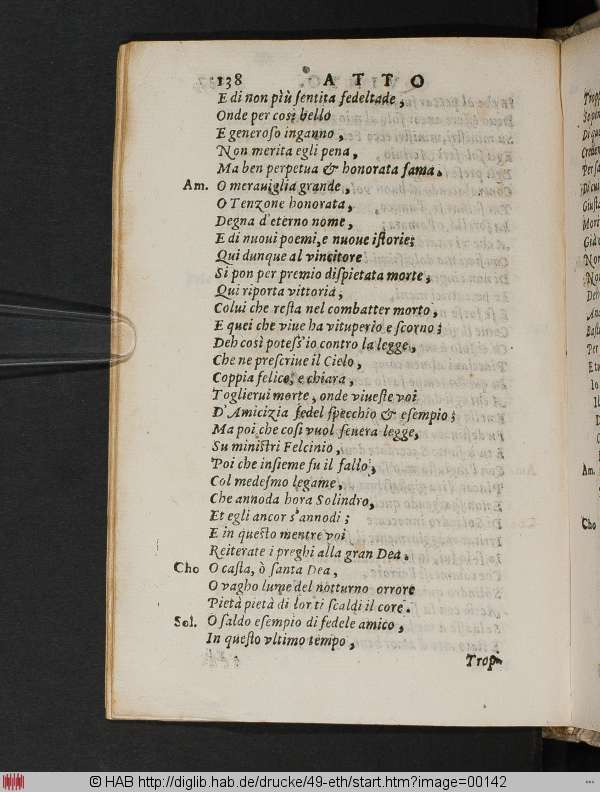 138 ATTO
E di non più ſentita fedeltade,
Onde per così bello
E generoſo inganno,
Non merita egli pena,
Ma ben perpetua & honorata fama.
Am. O merauiglia grande,
O Tenzone honorata,
Degna d'eterno nome,
E di nuoui poemi, e nuoue iſtorie;
Qui dunque al vincitore
Si pon per premio diſpietata morte,
Qui riporta vittoria,
Colui che reſta nel combatter morto,
E quei che viue ha vituperio e ſcorno;
Deh così poteſs'io contro la legge,
Che ne preſcriue il Cielo,
Coppia felice, e chiara,
Toglierui morte, onde viueſte voi
D'Amicizia fedel ſpecchio & eſempio;
Ma poi che coſi vuol ſeuera legge,
Su miniſtri Felcinio,
Poi che inſieme fu il fallo,
Col medeſmo legame,
Che annoda hora Solindro,
Et egli ancor s'annodi;
E in queſto mentre voi
Reiterate i preghi alla gran Dea.
Cho O caſta, ò ſanta Dea,
O vagho lume del notturno orrore
Pietà pietà di lor ti ſcaldi il core.
Sol. O ſaldo eſempio di fedele amico,
In queſto vltimo tempo,
Trop-
© HAB http://diglib.hab.de/drucke/49-eth/start.htm?image=00142